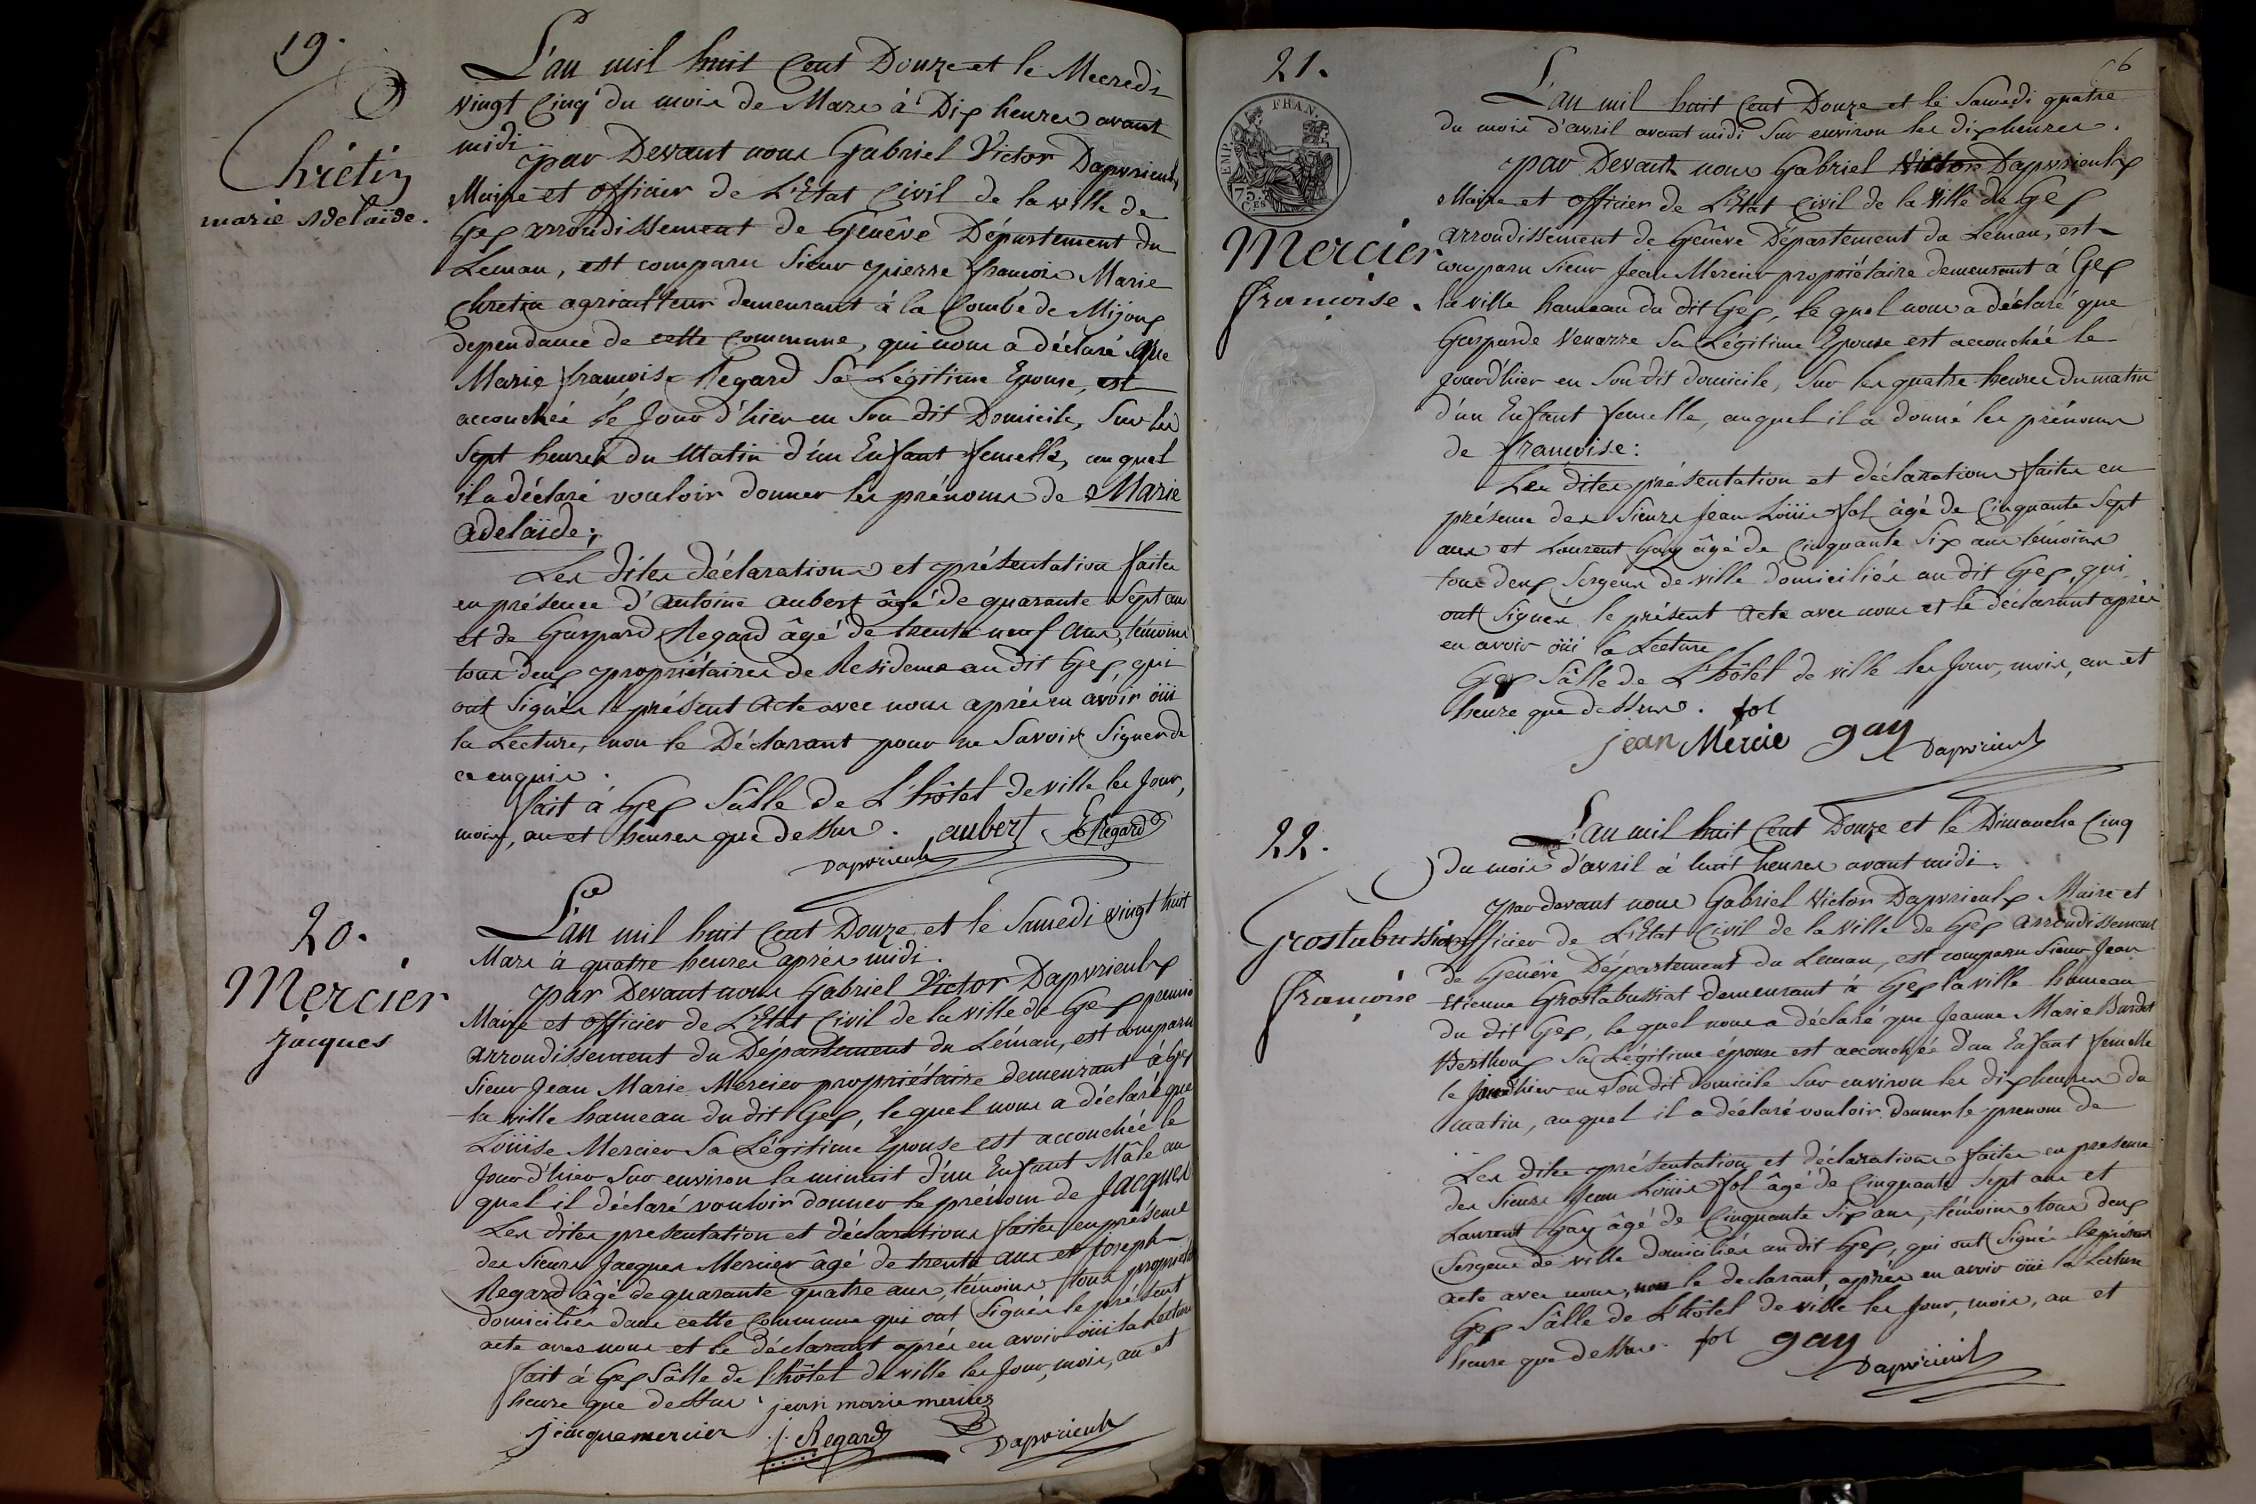 19.
Chrétin
marie Adelaïde.
L'an mil huit Cent Douze et le Mecredi
vingt Cinq du mois de Mars à Dix heures avant
midi.
par Devant nous Gabriel Victor Dapvrieulx
Maire et officier de L'Etat Civil de la ville de
Gex arrondissement de Genêve Département du
Leman, est comparu Sieur pierre françois Marie
Chretin agriculteur demeurant à la Combe de Mijoux
dependance de cette Commune, qui nous a déclaré que
Marie françoise Regard Sa Légitime Epouse, est
accouchée le Jour d'hier en Son dit Domicile, Sur les
Sept heures du Matin d'un Enfant femelle, au quel
il a déclaré vouloir donner les prénoms de Marie
adelaïde;
Les dites déclarations et présentation faites
en présence d'antoine aubert âgé de quarante Sept ans
et de Gaspard Regard âgé de trente neuf ans, témoins
tous deux propriétaires de Residence au dit Gex, qui
ont Signés le présent acte avec nous après en avoir öüi
la Lecture, non le Déclarant pour ne Savoir Signer de
ce enquis.
fait à Gex Sâlle de L'hôtel de ville les Jour,
mois, an et heures que dessus. aubert G Regard
Dapvrieulx
20.
Mercier
Jacques
L'an mil huit Cent Douze et le Samedi vingt huit
Mars à quatre heures après midi.
par Devant nous Gabriel Victor Dapvrieulx
Maire et officier de L'Etat Civil de la ville de Gex premier
arrondissement du Département du Léman, est comparu
Sieur Jean Marie Mercier propriétaire demeurant à Gex
la ville hameau du dit Gex, le quel nous a déclaré que
Loüise Mercier Sa Légitime Epouse est accouchée le
Jour d'hier Sur environ la minuit d'un Enfant Mâle au
quel il déclaré vouloir donner le prénom de Jacques
Les dites presentation et déclarations faites en présence
des Sieurs Jacques Mercier âgé de trente ans et Joseph
Regard âgé de quarante quatre ans, témoins tous propriét
domiciliés dans cette Commune qui ont Signés le présent
acte avec nous et le déclarant après en avoir öüi la Lecture
fait à Gex Sâlle de l'hôtel de ville les Jour, mois, an et
heure que dessus. jean marie mercier
jacque mercier j. Regard Dapvrieulx
21.
EMP. FRAN.
75 CES
Mercier
françoise.
L'an mil huit Cent Douze et le Samedi quatre
du mois d'avril avant midi Sur environ les dix heures.
par Devant nous Gabriel Victor Dapvrieulx
Maire et officier de L'Etat Civil de la Ville de Gex
arrondissement de Genêve Département du Leman, est
comparu Sieur Jean Mercier propriétaire demeurant à Gex
la ville hameau du dit Gex, le quel nous a déclaré que
Gasparde Venarre Sa Légitime Epouse est accouchée le
Jourd'hier en Son dit domicile, Sur les quatre heures du matin
d'un Enfant femelle, auquel il a donné les prénoms
de françoise:
Les dites présentation et déclarations faites en
présence des Sieurs Jean Loüis fol âgé de Cinquante Sept
ans et Laurent Gay âgé de Cinquante Six ans témoins
tous deux Sergens de ville domiciliés au dit Gex, qui
ont Signés le présent acte avec nous et le déclarant après
en avoir öüi la Lecture
Gex Sâlle de L'hôtel de ville les Jour, mois, an et
heure que dessus. fol
jean Mercie gay Dapvrieulx
22.
Grostabussiat
françoise
L'an mil huit Cent Douze et le Dimanche Cinq
du mois d'avril à huit heures avant midi.
par devant nous Gabriel Victor Dapvrieulx Maire et
officier de L'Etat Civil de la Ville de Gex arrondissement
de Genêve Département du Leman, est comparu Sieur Jean
Etienne Grostabussiat demeurant à Gex la ville hameau
du dit Gex, le quel nous a déclaré que Jeanne Marie Burdet
Berthoux Sa Légitime épouse est accouchée d'un Enfant femelle
le Jourd'hier en Son dit domicile Sur environ les dix heures du
matin, auquel il a déclaré vouloir donner le prenom de
Les dites présentation et déclarations faites en presence
des Sieurs Jean Loüis fol âgé de Cinquante Sept ans et
Laurent Gay âgé de Cinquante Six ans, témoins tous deux
Sergens de ville domiciliés au dit Gex, qui ont Signés le présent
acte avec nous, non le declarant, après en avoir öüi la Lecture
Gex Sâlle de L'hôtel de ville les Jour, mois, an et
heure que dessus. fol gay
Dapvrieulx